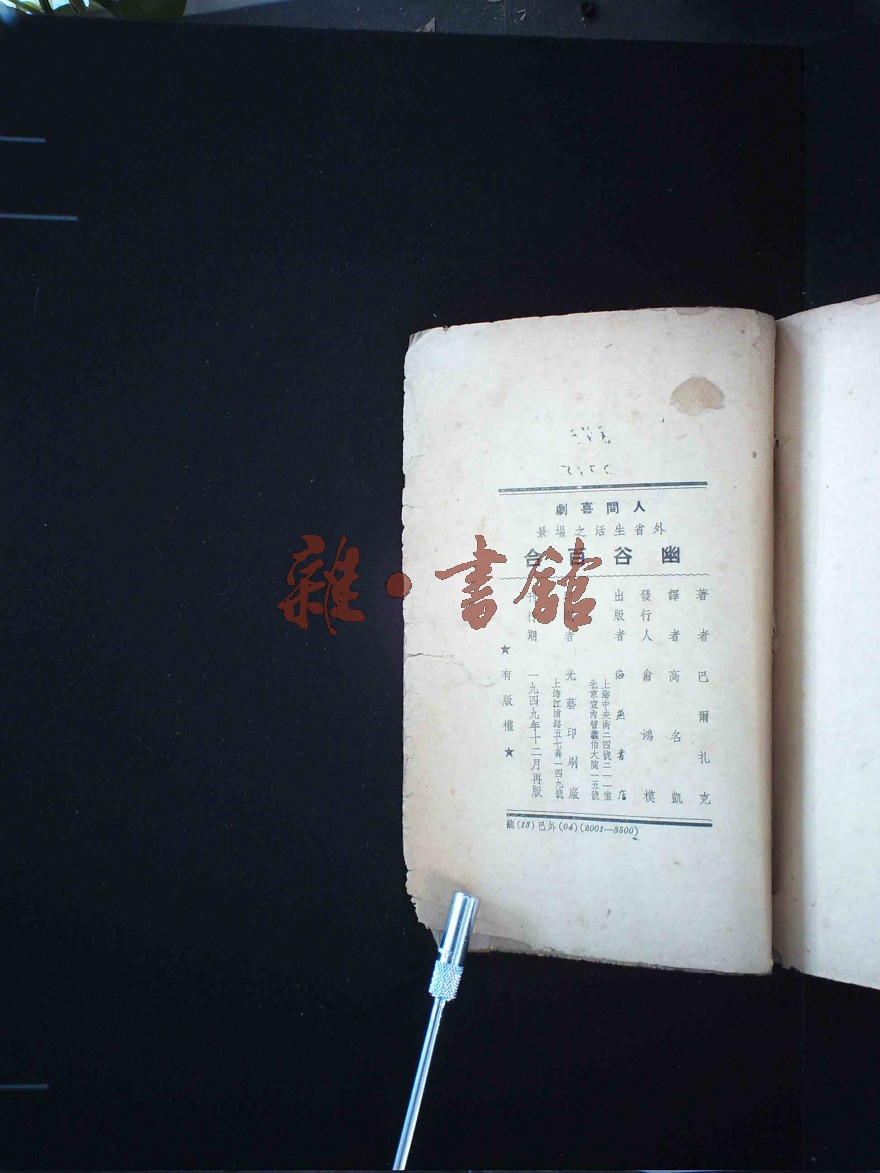 人間喜劇
外省生活之場景
幽谷百合
著者 巴爾扎克
譯者 高名凱
發行人 俞鴻模
出版者 海燕書店
上海中央街二四號二一一室
北京宣內智義伯大院一五號
者 光藝印刷廠
上海江浦路五七弄一四九號
刊行期 一九四九年十二月再版
★有版權★
(13)巴外(04)(2001—3500)
雜·書館